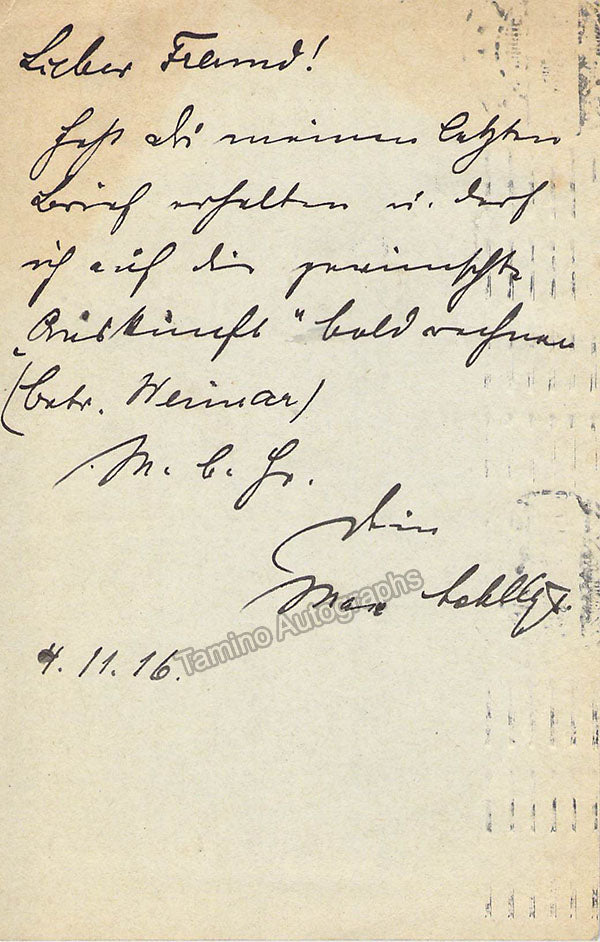 Lieber Freund!
Hast Du meinen letzten
Brief erhalten u. darf
ich auf die gewünschte
„Auskunft“ bald rechnen
(betr. Weimar)
M. b. Gr.
Dein
Max
4. 11. 16.
Tamino Autographs